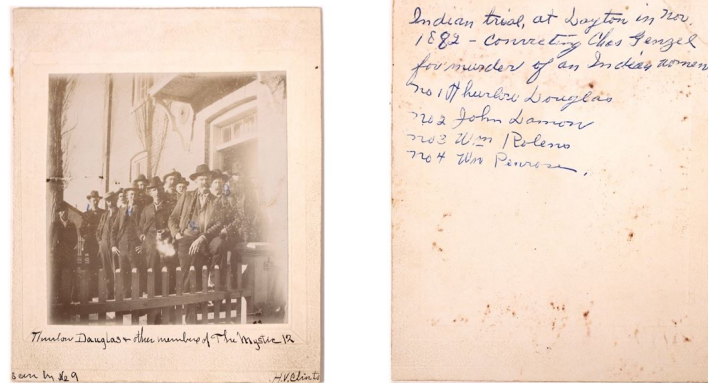 Thurlow Douglas & other members of The Mystic 12
seen by No 9
H.V. Clints
Indian trial, at Dayton in Nov.
1882 - convicting Chas Genzel
for murder of an Indian women
no 1 Thurlow Douglas
no 2 John Damon
no 3 Wm Roleno
no 4 Wm Penrose.